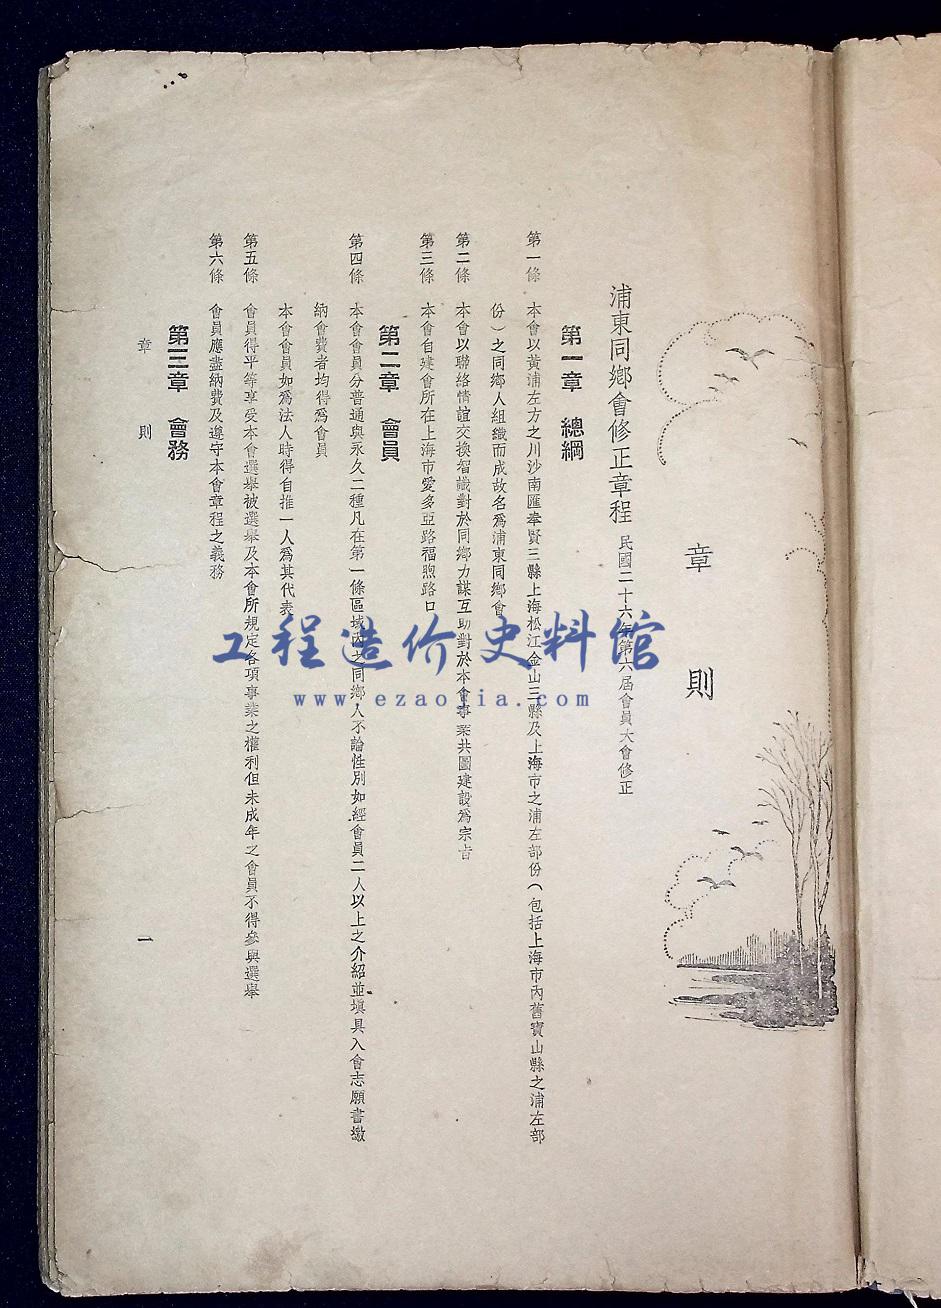 章則
浦東同鄉會修正章程 民國二十六年第六屆會員大會修正
第一章 總綱
第一條 本會以黃浦左方之川沙南匯奉賢三縣上海松江金山三縣及上海市之浦左部份（包括上海市內舊寶山縣之浦左部
份）之同鄉人組織而成故名爲浦東同鄉會
第二條 本會以聯絡情誼交換智識對於同鄉力謀互助對於本會事業共圖建設爲宗旨
第三條 本會自建會所在上海市愛多亞路福煦路口
第二章 會員
第四條 本會會員分普通與永久二種凡在第一條區域內之同鄉人不論性別如經會員二人以上之介紹並填具入會志願書繳
納會費者均得爲會員
本會會員如爲法人時得自推一人爲其代表
第五條 會員得平等享受本會選舉被選舉及本會所規定各項事業之權利但未成年之會員不得參與選舉
第六條 會員應盡納費及遵守本會章程之義務
第三章 會務
章則
一
工程造价史料馆
www.ezaojia.com